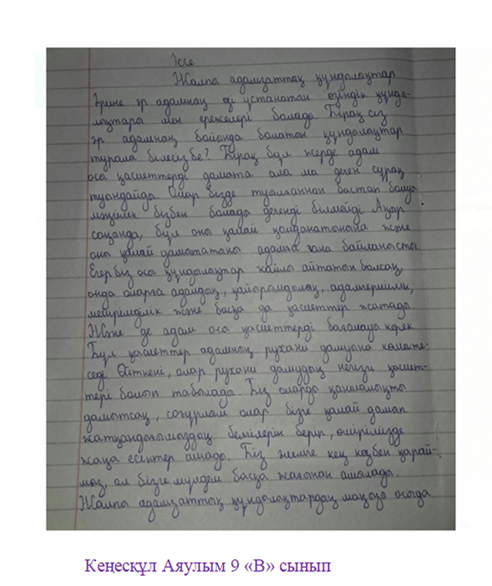 Эссе
Жалпы адамзаттық құндылықтар
Әрине әр адамның өзі ұстанатын өзіндік құнды-
лықтары мен ережелері болады. Бірақ сіз
әр адамның бойында болатын құндылықтар
туралы білесіз бе? Бірақ бұл жерде адам
осы қасиеттерді дамыта ала ма деген сұрақ
туындайды. Олар бізде туылғаннан бастап болып
мәңгілік бізбен болады дегенді білмейді. Ақыр
соңында, бұл оны қалай қолданатынына және
оны қалай дамытатыны адамға ғана байланысты
Егер біз осы құндылықтар жайлы айтатын болсақ,
онда оларға адалдық, қайырымдылық, адамгершілік,
мейірімділік және басқа да қасиеттер жатады
Және де адам осы қасиеттерді бағалауы керек
Бұл қасиеттер адамның рухани дамуына көмекте-
седі. Өйткені, олар рухани дамудың негізгі қасиет-
тері болып табылады. Біз оларды қаншалықты
дамытсақ, соғұрлым олар бізге қалай дамып
жатқандығымыздың белгілерін беріп, өмірімізде
жаңа есіктер ашады. Біз әлемге кең көзбен қарай-
мыз, ал бізге мүлдем басқа жағынан ашылады.
Жалпы адамзаттық құндылықтардың маңызы осында
Кеңесқұл Аяулым 9 «В» сынып